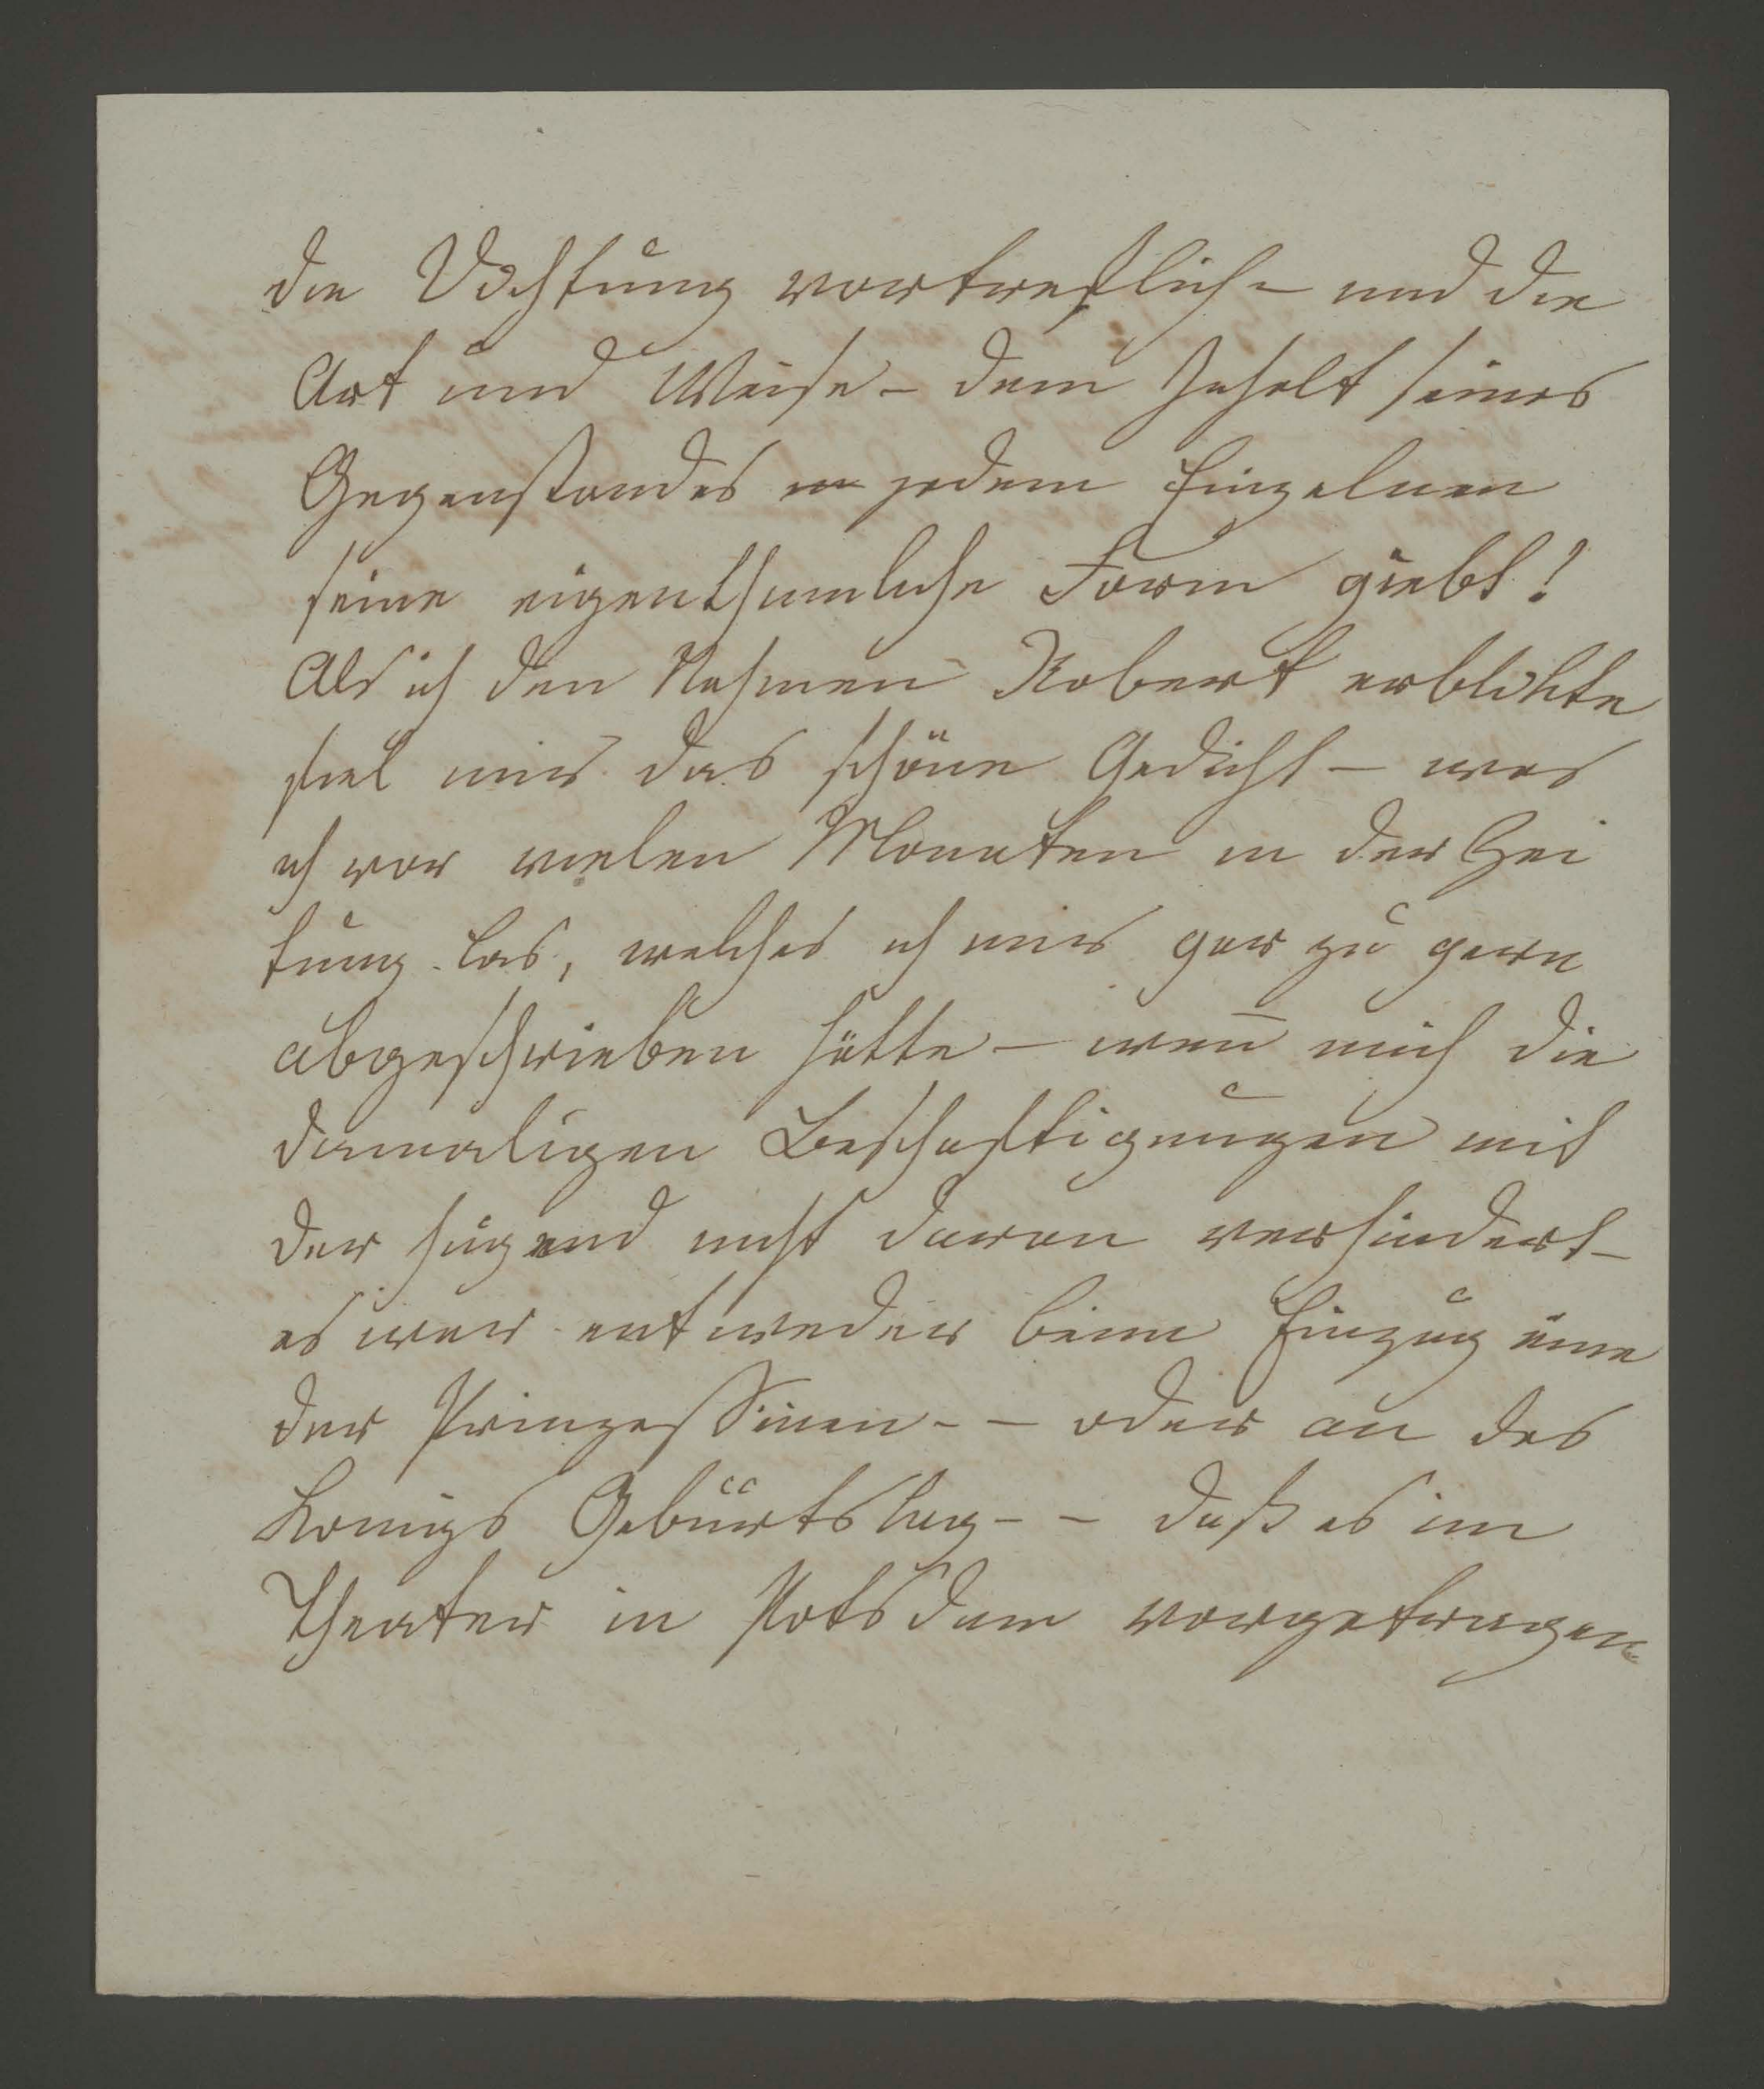 die Dichtung vortreflich – und die
Art und Weise – dem Inhalt seines
Gegenstandes in jedem Einzelnen
seine eigenthumliche Form giebt!
Als ich den Nahmen Robert erblikte
fiel mir das schöne Gedicht – was
ich vor vielen Monaten in der Zei
tung las, welches ich mir gar zu gern
abgeschrieben hätte – wen̅ mich die
damaligen Beschaftigungen mit
der Jugend nicht daran verhindert –
es war entweder beim Einzug eine
der Prinzessinen – – oder an des
Konigs Geburtstag – – daß es im
Theater in Potsdam vorgetragen